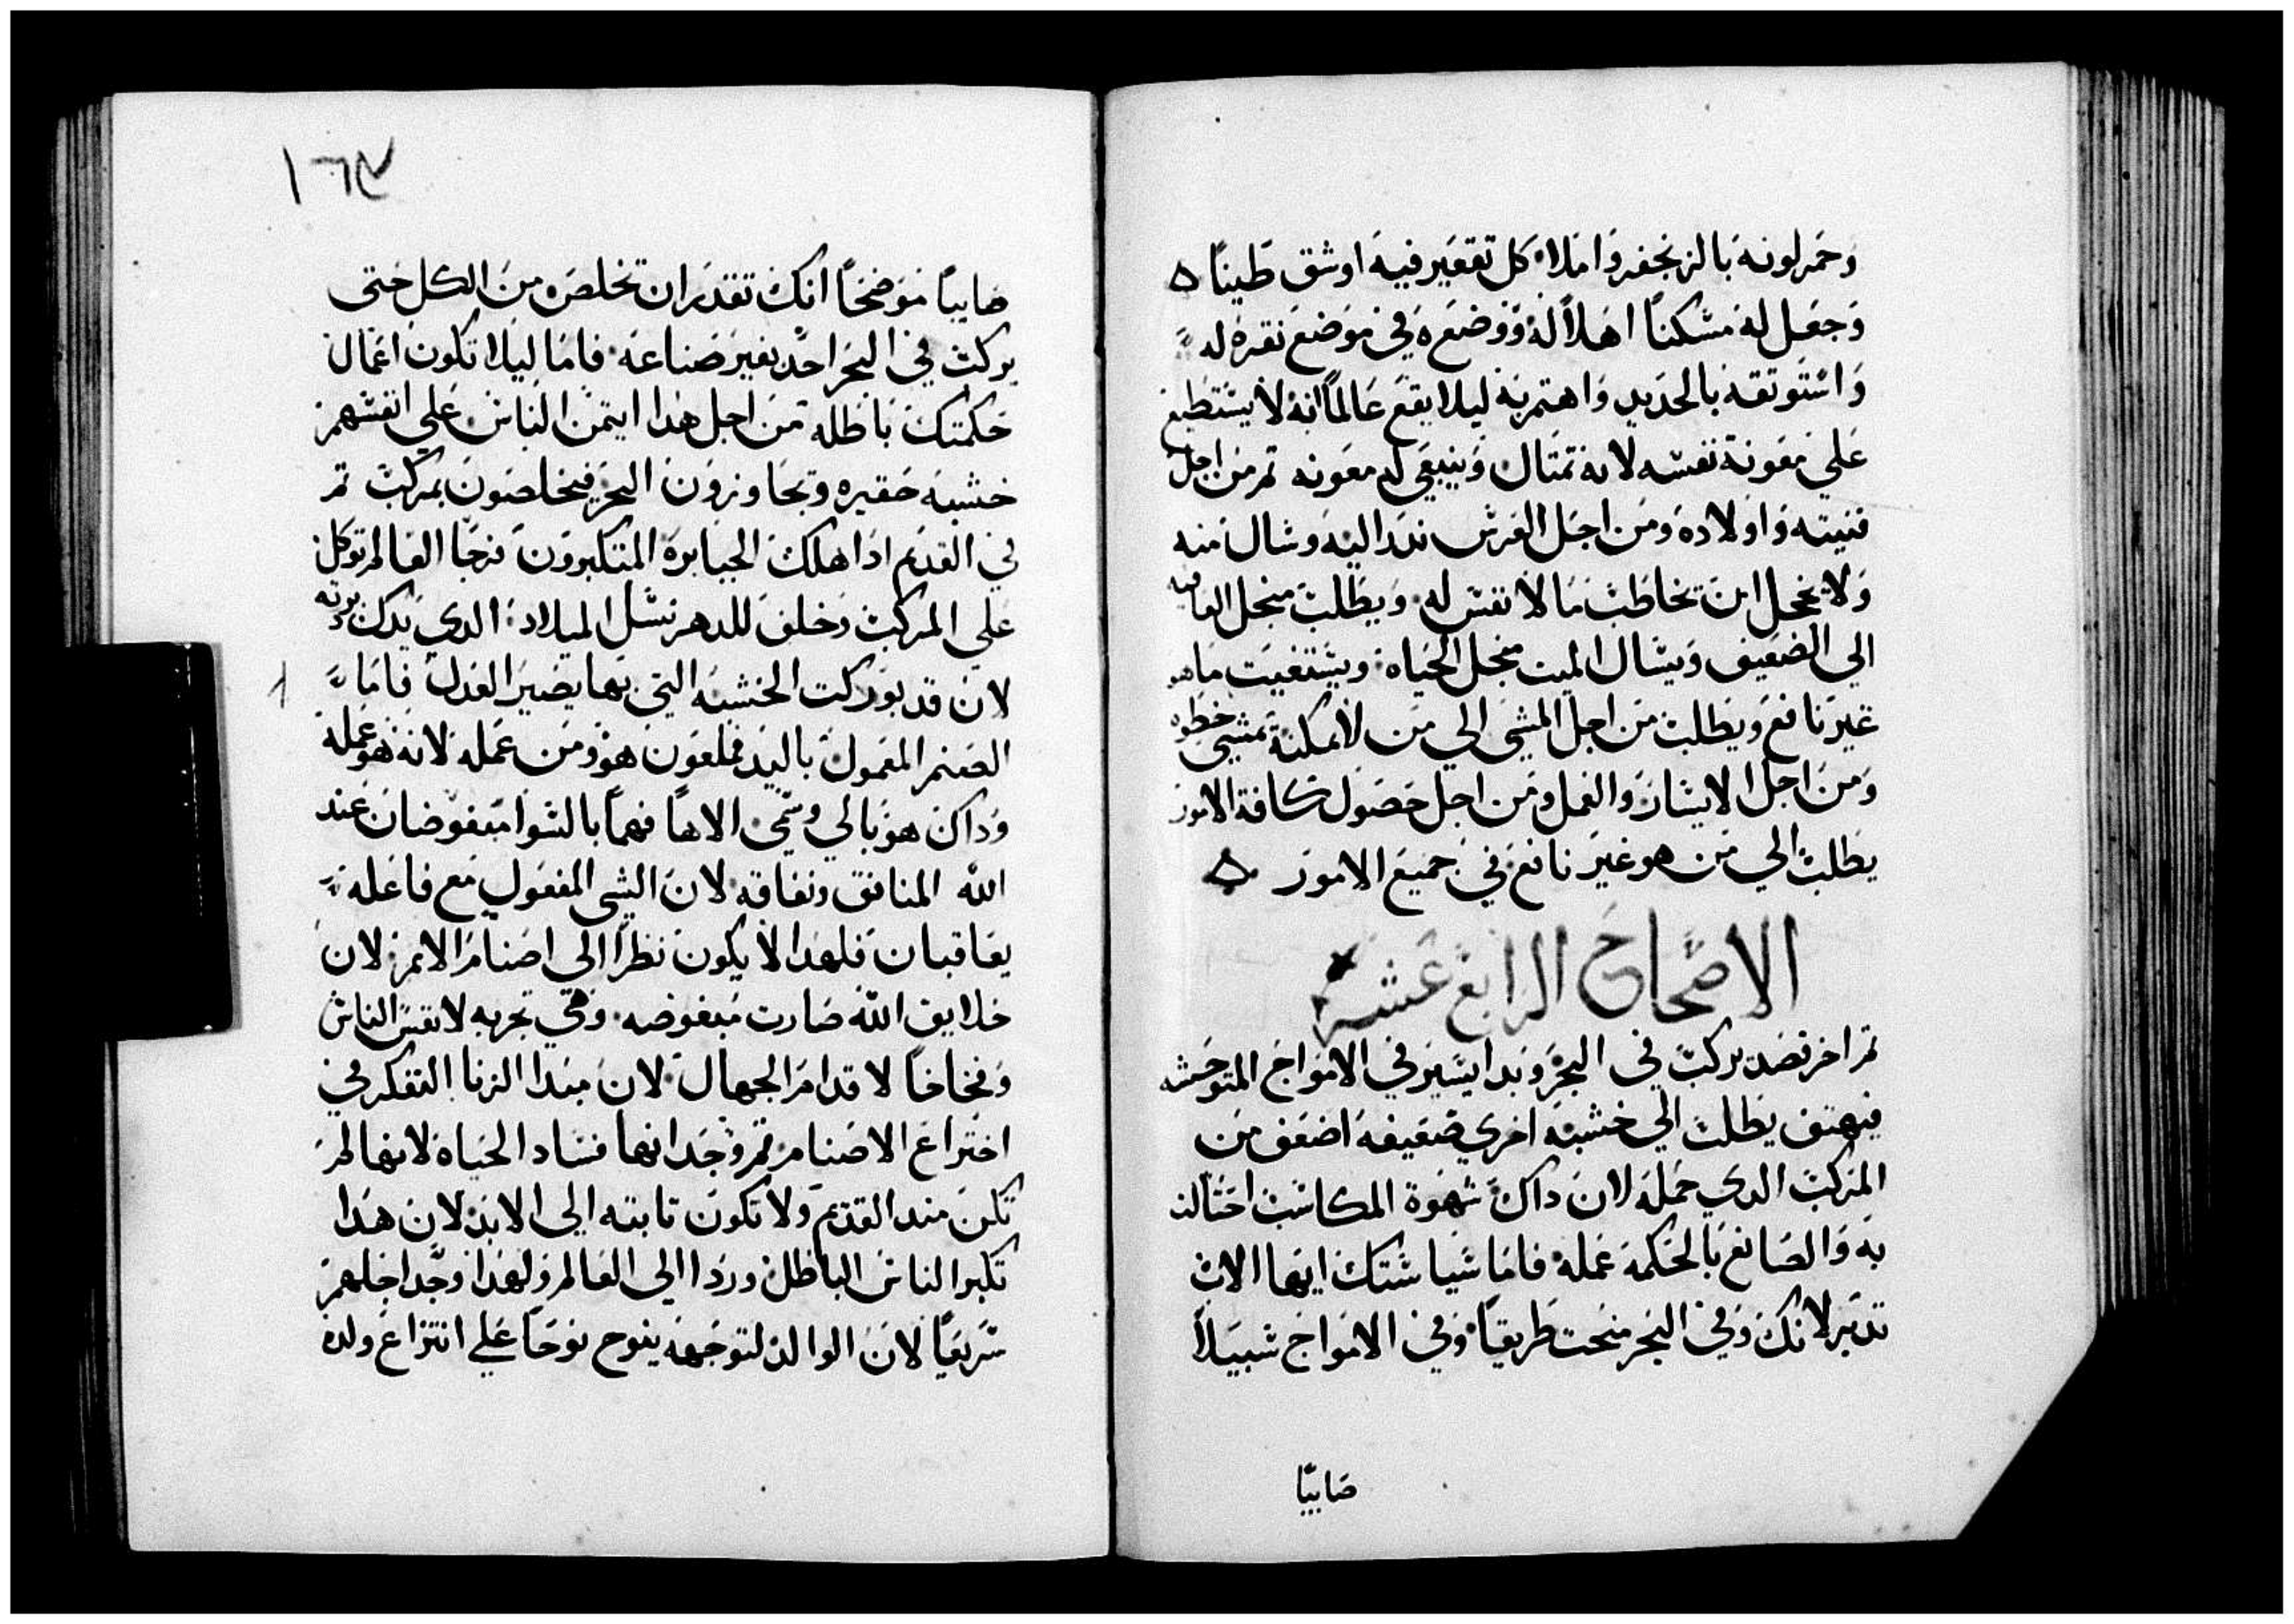 وحمر لونه بالزنجفر واملا كل تقعير فيه اوشق طينا ه
وجعل له مسكنا اهلا له ووضعه في موضع نقره له
واستوتقه بالحديد واهتم به ليلا يقع عالما انه لا يستطيع
علي معونة نفسه لانه تمتال وينبغي له معونه تم من اجل
قنيته واولاده ومن اجل العرس ندر اليه وسال منه
ولا يخجل ان يخاطب ما لا نفس له ويطلب منجل العافيه
الي الضعيف ويسال الميت منجل الحياه ويستغيت ما هو
غير نافع ويطلب من اجل المشي الي من لا يمكنه تمشي خطوه
ومن اجل الايسار والعمل ومن اجل حصول كافة الامور
يطلب الي من هو غير نافع في جميع الامور ه
الاصحاح الرابع عشر
تم اخر قصد يركب في البحر وبدا يسير في الامواج المتوحشه
فيهتف يطلب الي خشبه اخري ضعيفه اضعف من
المركب الدي حمله لان داك شهوة المكاسب احتالت
به والصانع بالحكمه عمله فاما سياستك ايها الاب
تدبر لانك وفي البحر منحت طريقا وفي الامواج سبيلا
صايبا
١٦٧
صايبا موضحا انك تقدر ان تخلص من الكل حتي
يركب في البحر احد بغير صناعه فاما ليلا تكون اعمال
حكمتك باطله من اجل هدا ايتمن الناس علي انفسهم
خشبه حقيره وتجاوزون البحر فيخلصون بمركب تم
في القديم ادا هلك الجبابرة المتكبرون فرجا العالم توكل
علي المركب وخلف للدهر نسل الميلاد الدي يدك دبرته
لان قد بوركت الخشبه التي بها يصير العدل فاما
الصنم المعمول باليد فملعون هو ومن عمله لانه هو عمله
وداك هو بالي وسمي الاها فهما بالسوا مبغوضان عند
الله المنافق ونفاقه لان الشي المفعول مع فاعله
يعاقبان فلهدا لا يكون نظرا الي اصنام الامم لان
خلايق الله صارت مبغوضه وفي تجربه لانفس الناس
وفخاخا لاقدام الجهال لان مبدا الزنا التفكر في
اختراع الاصنام تم وجدانها فساد الحياه لانها لم
تكن مند القديم ولا تكون تابته الي الابد لان هدا
تكبر الناس الباطل ورد الي العالم ولهدا وجد اجلهم
سريعا لان الوالد لتوجهه ينوح نوحا علي انتزاع ولده